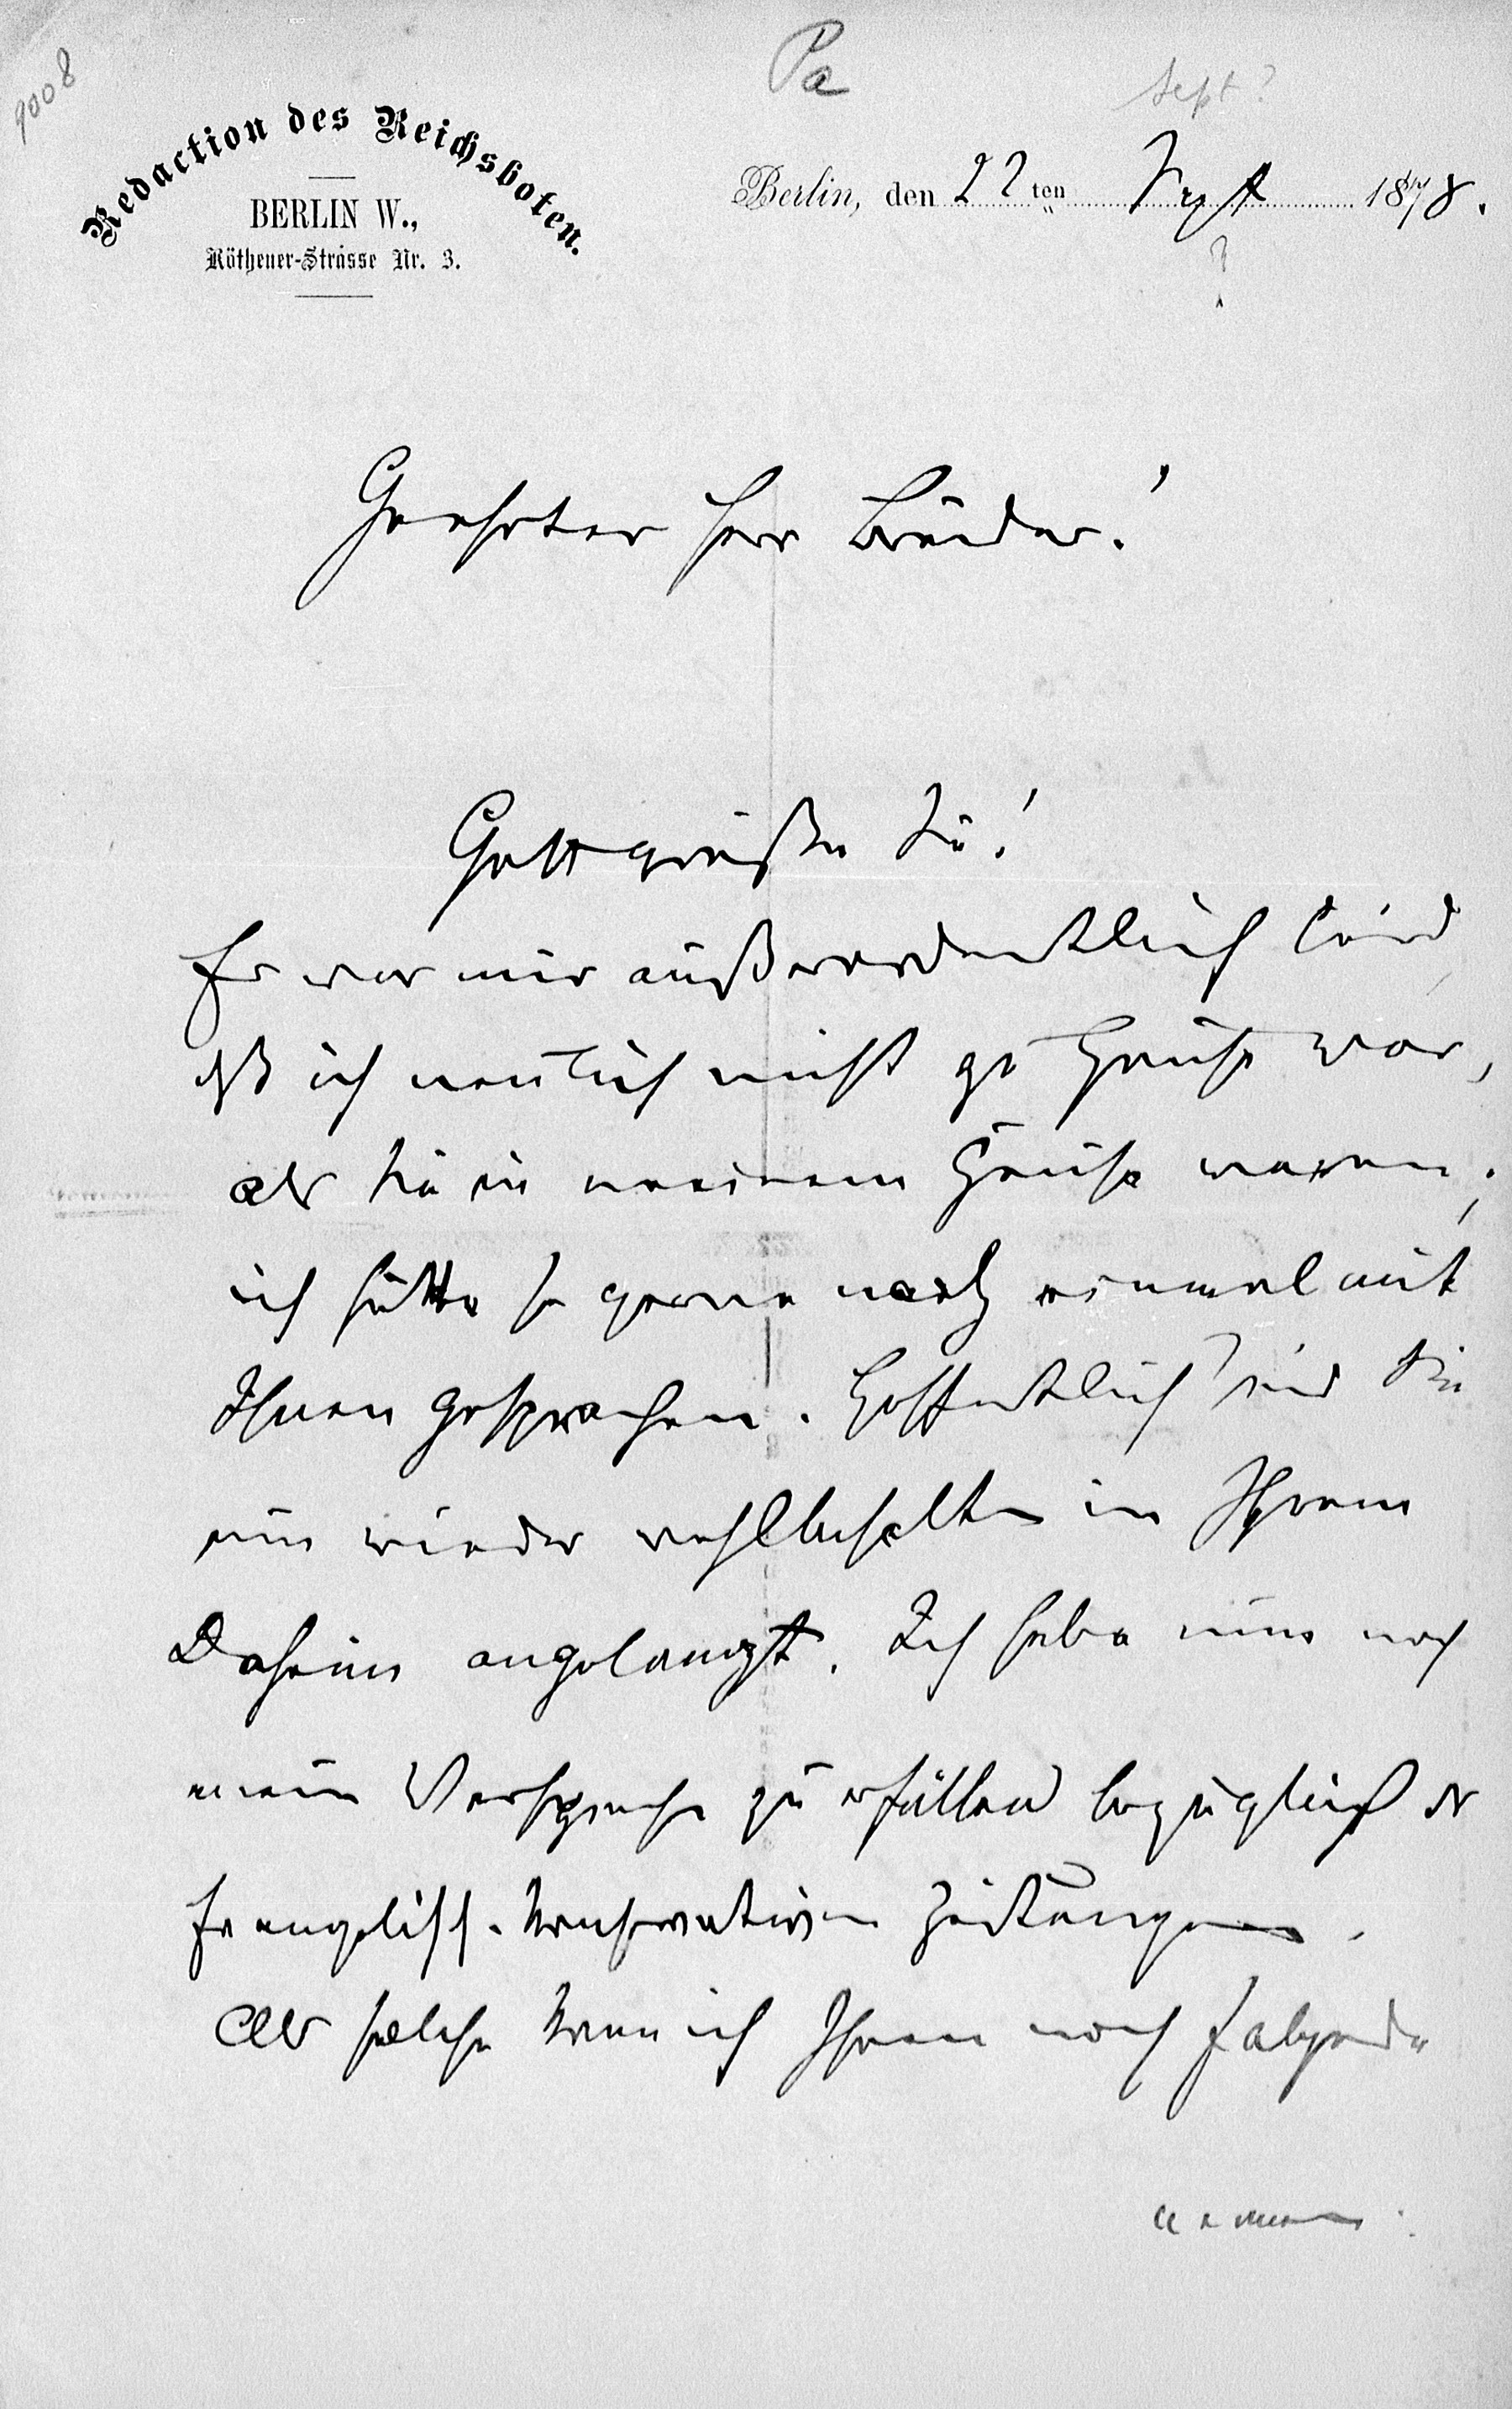 9008
Pa
Sept?
Redaction des Reichsboten.
BERLIN W.,
Köthener-Strasse Nr. 3.
Berlin, den 22 ten Sept 1878.
?
Geehrter Herr Bruder!
Gott grüße Sie!
Es war mir außerordentlich leid,
dß ich neulich nicht zu Hause war,
als Sie in meinem Hause waren;
ich hätte so gerne noch einmal mit
Ihnen gesprochen. Hoffentlich sind Sie
nun wieder wohlbehalten in Ihrem
Daheim angelangt. Ich habe nun noch
mein Versprechen zu erfüllen bezüglich der
Evangelisch-konservativen Zeitungen.
Als solche kann ich Ihnen noch folgende
nennen: